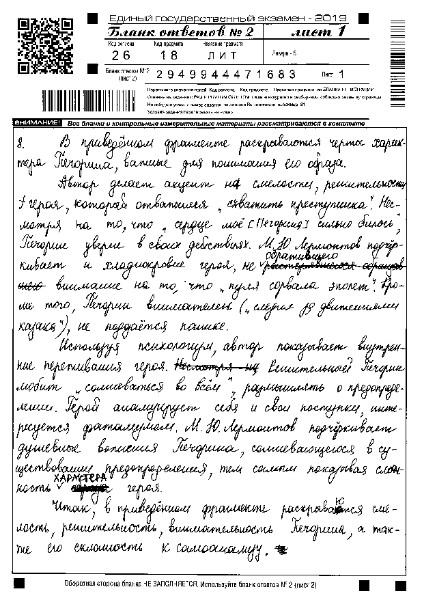 Единый государственный экзамен - 2019
Бланк ответов № 2 лист 1
Код региона Код предмета Название предмета
26 18 ЛИТ
Бланк ответов № 2 (лист 2) 2949944471683 Лист 1
ВНИМАНИЕ! Все бланки и контрольные измерительные материалы рассматриваются в комплекте
8. В приведённом фрагменте раскрываются черты харак-
тера Печорина, важные для понимания его образа.
Автор делает акцент на смелости, решительности
героя, который отважился „схватить преступника". Нес-
мотря на то, что „сердце моё [Печорина] сильно билось",
Печорин уверен в своих действиях. М. Ю. Лермонтов подчёр-
кивает и хладнокровие героя, не обратившего
внимание на то, что „пуля сорвала эполет". Кро-
ме того, Печорин внимателен („следил за движениями
казака"), не поддаётся панике.
Используя психологизм, автор показывает внутрен-
ние переживания героя. Решительный Печорин
любит „сомневаться во всём", размышлять о предопреде-
лении. Герой анализирует себя и свои поступки, инте-
ресуется фатализмом. М. Ю. Лермонтов подчёркивает
душевные волнения Печорина, сомневающегося в су-
ществовании предопределения, тем самым показывая слож-
ность ХАРАКТЕРА героя.
Итак, в приведённом фрагменте раскрываются сме-
лость, решительность, внимательность Печорина, а так-
же его склонность к самоанализу.
Оборотная сторона бланка НЕ ЗАПОЛНЯЕТСЯ. Используйте бланк ответов № 2 (лист 2)